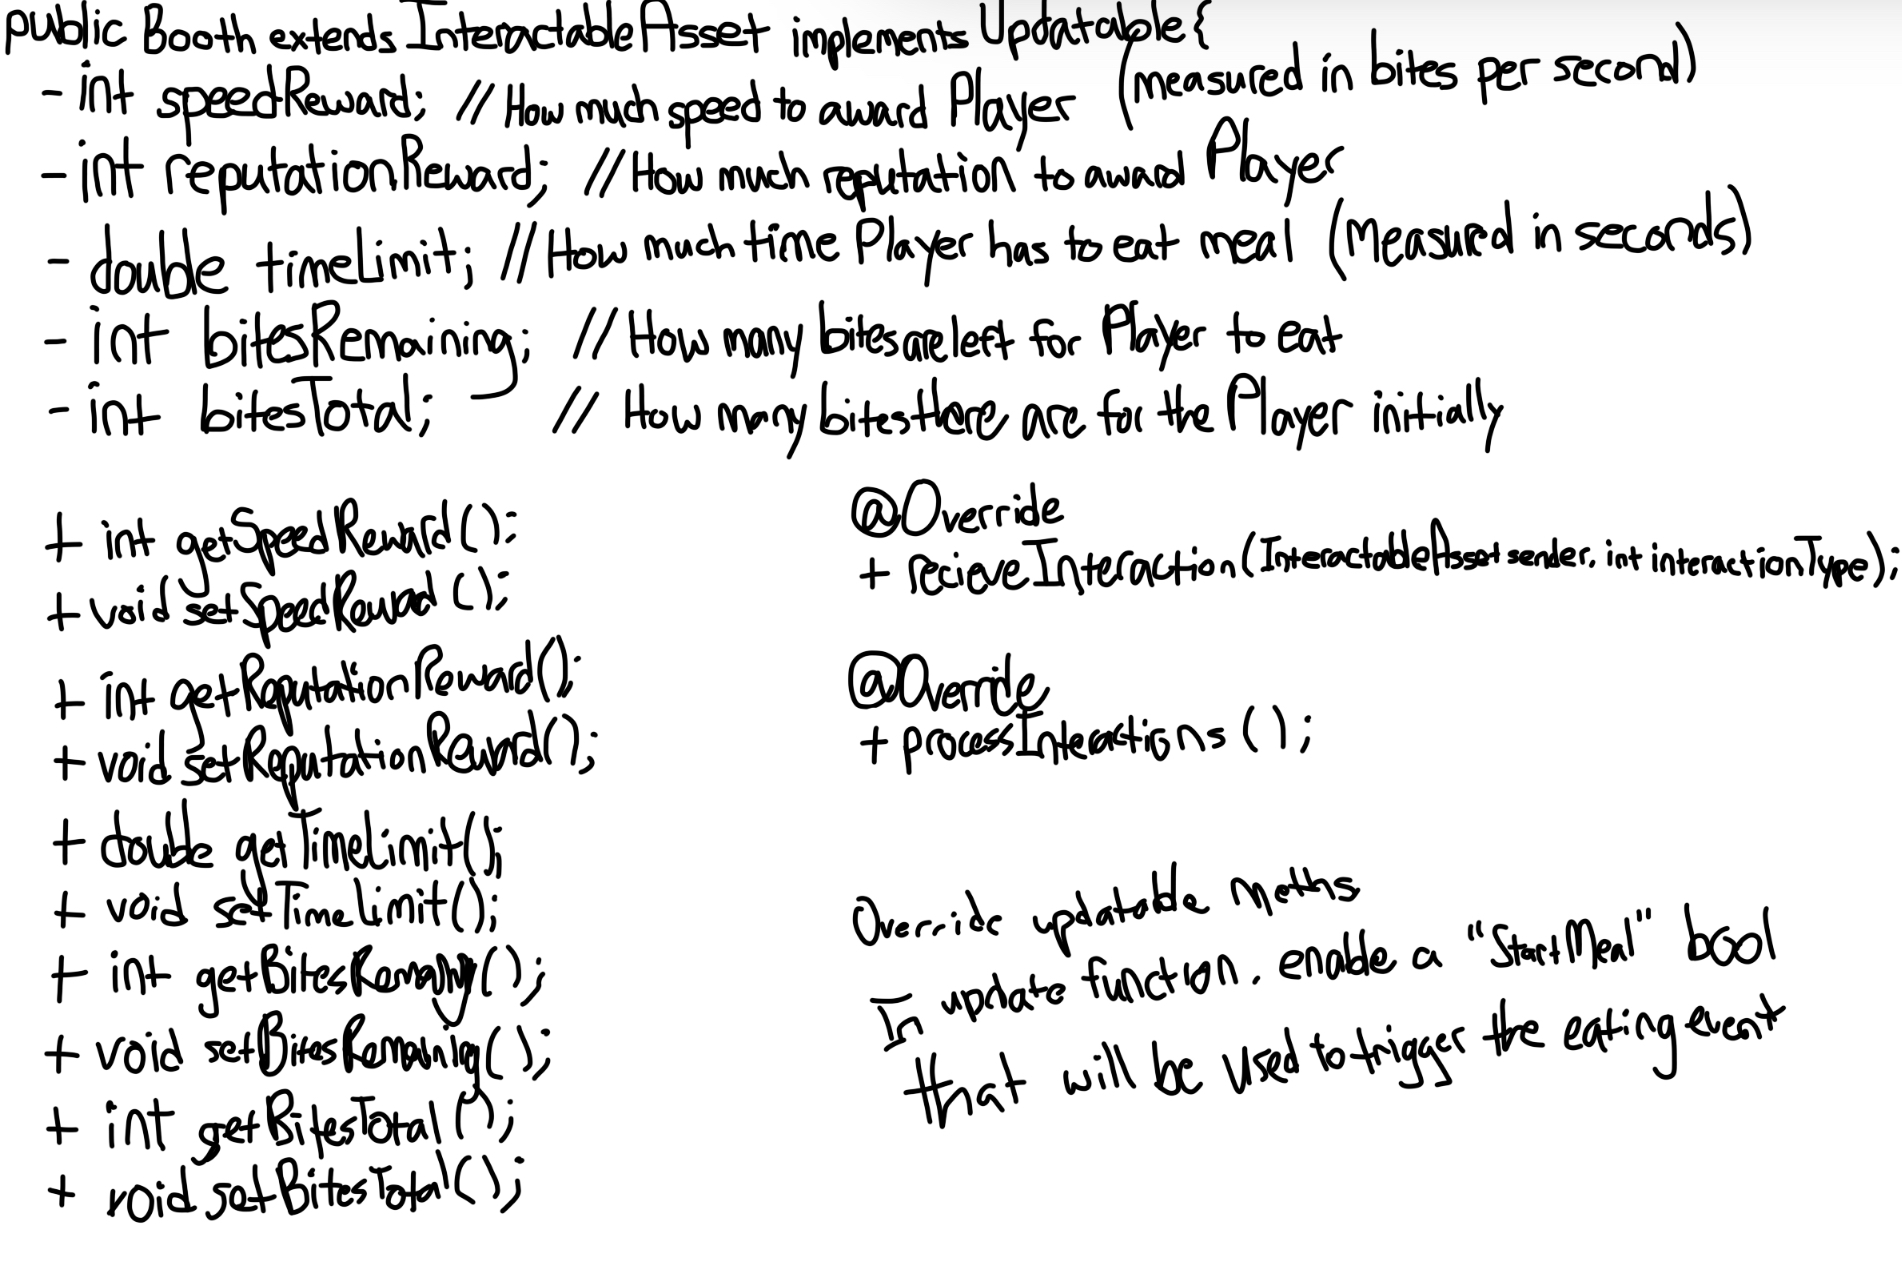 public Booth extends InteractableAsset implements Updatable{
- int speedReward; // How much speed to award Player (measured in bites per second)
- int reputationReward; // How much reputation to award Player
- double timeLimit; // How much time Player has to eat meal (Measured in seconds)
- int bitesRemaining; // How many bites are left for Player to eat
- int bitesTotal; // How many bites there are for the Player initially
+ int getSpeedReward();
+ void setSpeedReward();
+ int getReputationReward();
+ void setReputationReward();
+ double getTimeLimit();
+ void setTimeLimit();
+ int getBitesRemaining();
+ void setBitesRemaining();
+ int getBitesTotal();
+ void setBitesTotal();
@Override
+ recieveInteraction(InteractableAsset sender, int interactionType);
@Override
+ processInteractions();
Override updatable meths
In update function, enable a "StartMeal" bool
that will be used to trigger the eating event